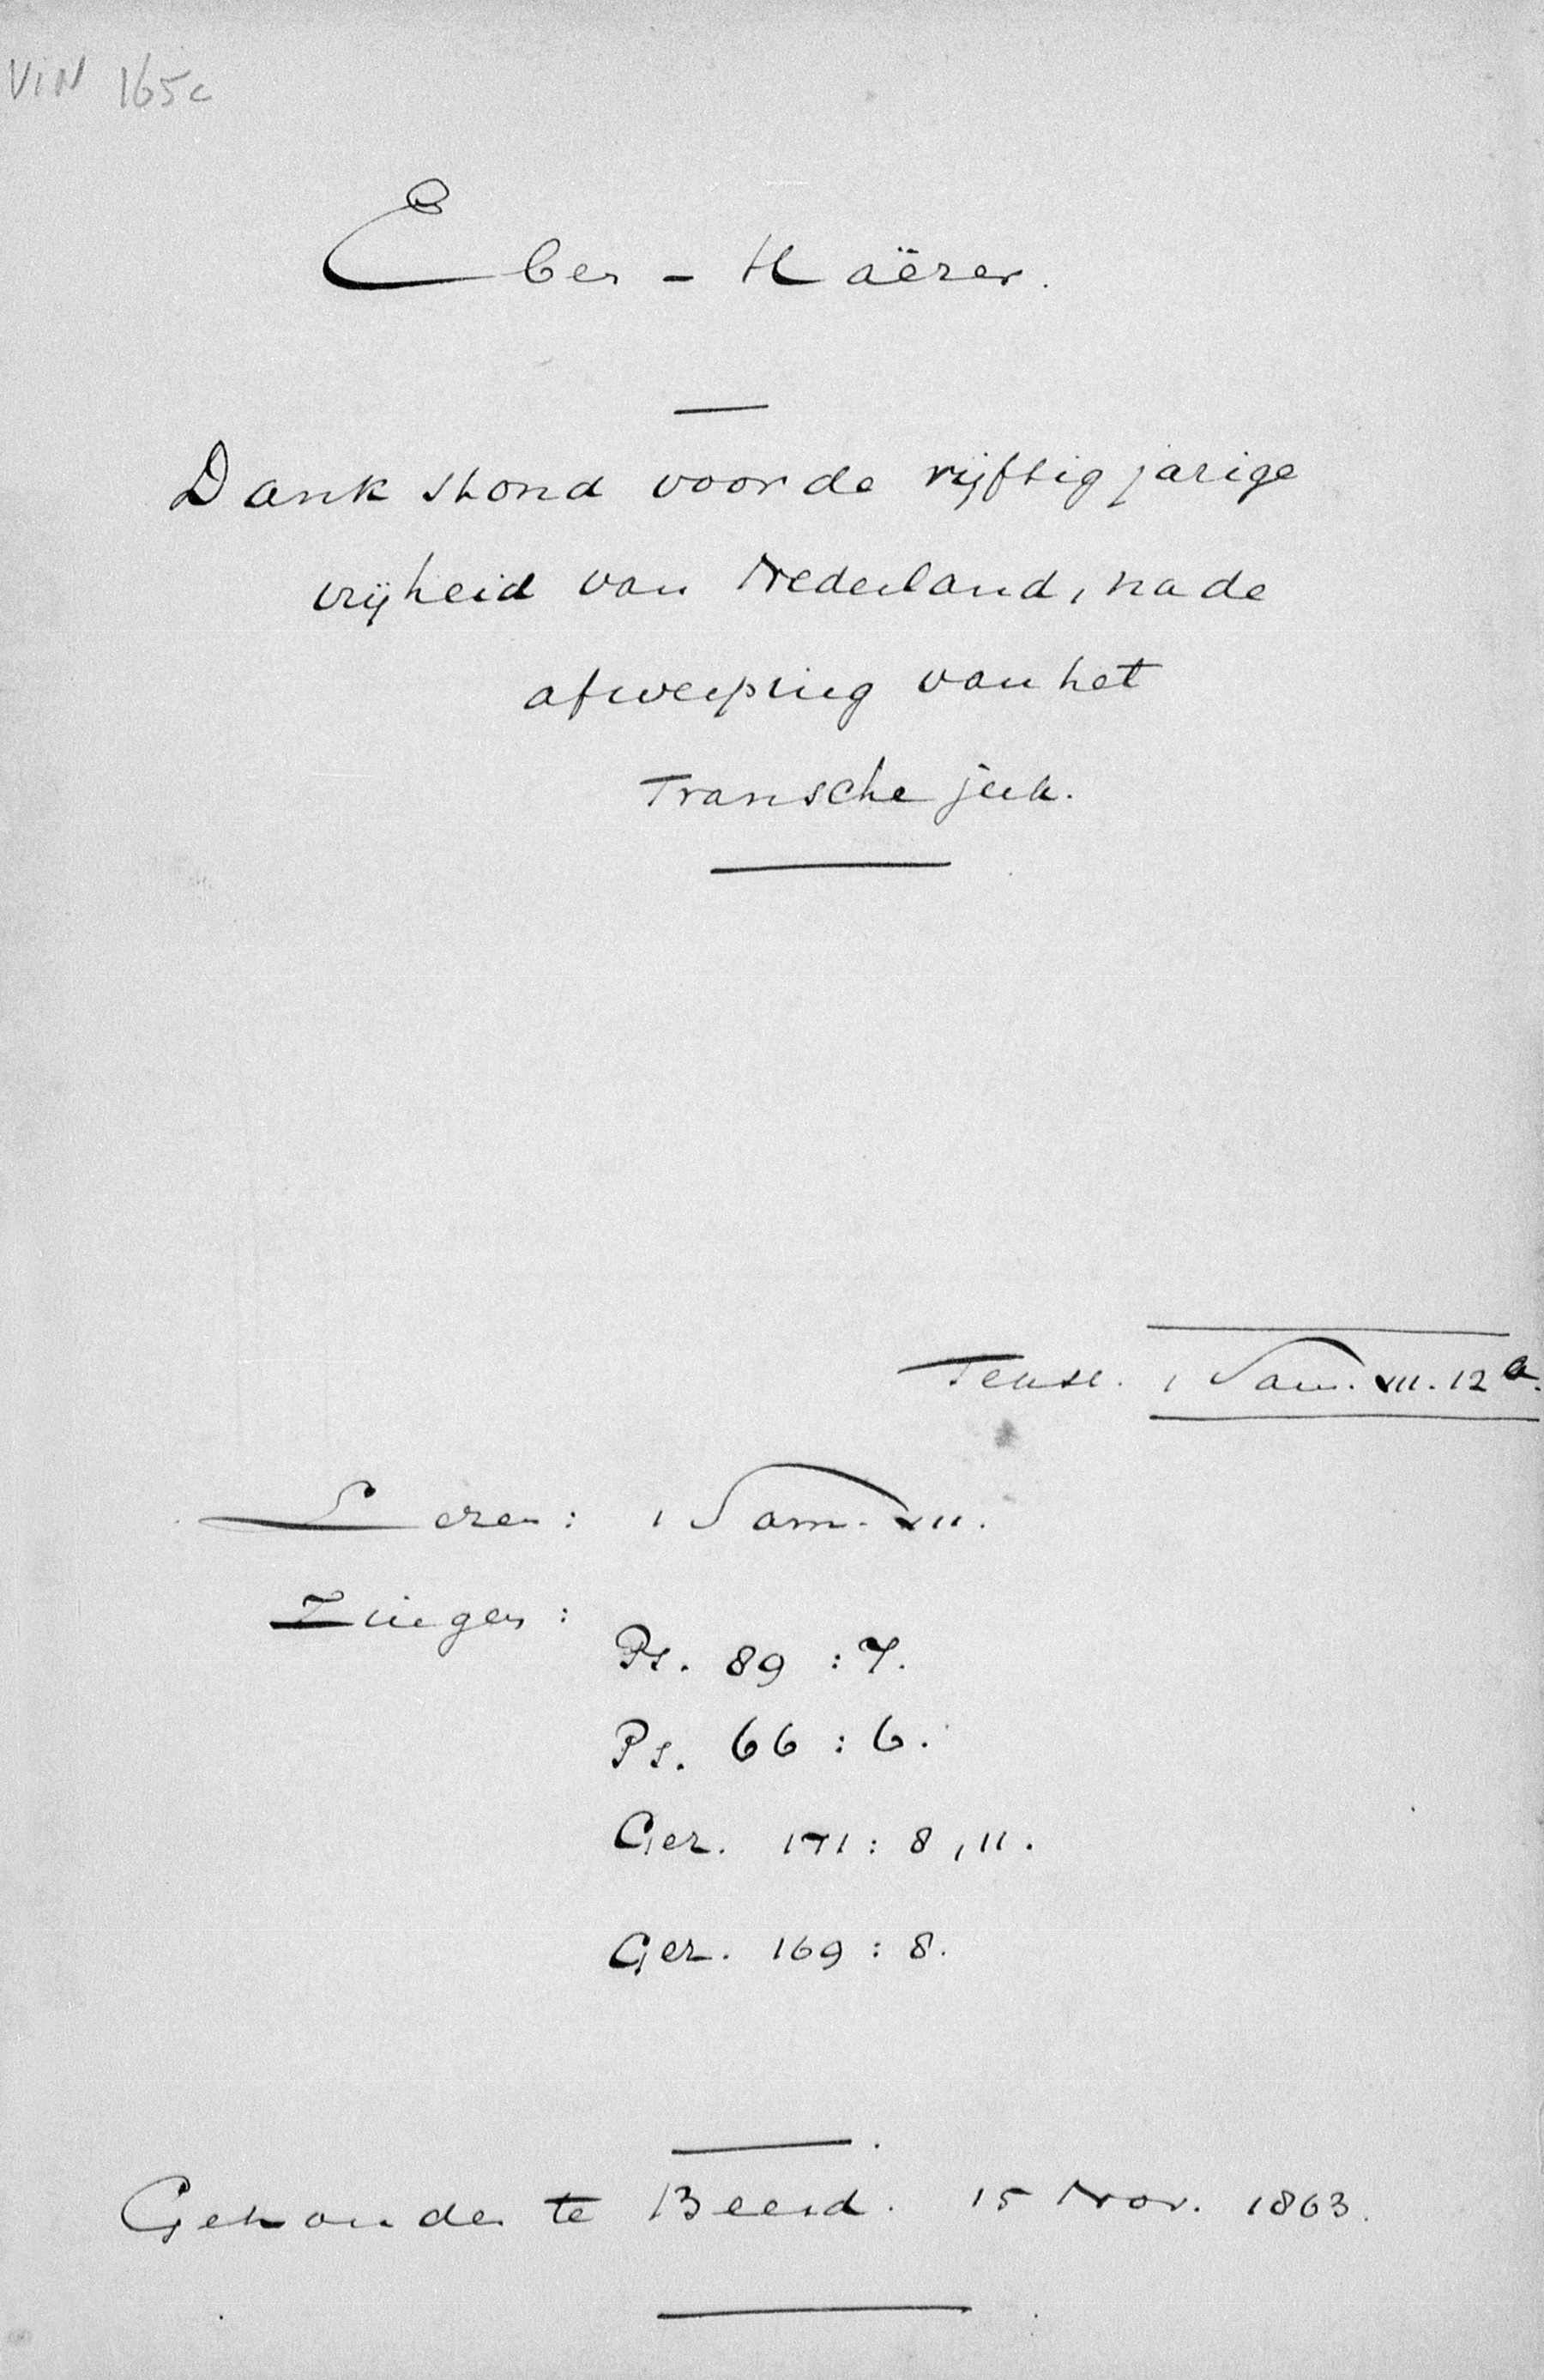 VIN 165c
Eben-Haëzer.
Dankstond voor de vijftigjarige
vrijheid van Nederland, na de
afwerping van het
Fransche juk.
Tekst. 1 Sam. VII. 12a.
Lezen: 1 Sam. VII.
Zingen:
Ps. 89 : 7.
Ps. 66 : 6.
Gez. 171 : 8, 11.
Gez. 169 : 8.
Gehouden te Beesd. 15 Nov. 1863.